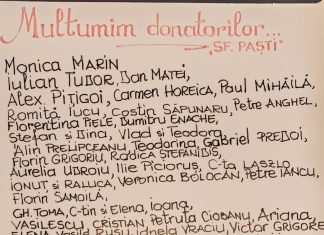 Multumim donatorilor...
"SF. PAȘTI"
Monica MARIN
Iulian TUDOR, Dan MATEI,
Alex. PIȚIGOI, Carmen HOREICA, Paul MIHĂILĂ,
Romiță Iucu, Costin SĂPUNARU, Petre ANGHEL,
Florentina PIELE, Dumitru ENACHE,
Ștefan și Dina, Vlad și Teodora,
Alin PRELIPCEANU, Teodorina, Gabriel PREDOI,
Florin GRIGORIU, Radița ȘTEFĂNIBIS,
Aurelia UDROIU, Ilie Piciorus, C-ța LASZLO,
IONUȚ și RALUCA, Veronica BOLOCAN, Petre IANCU,
Florin SAMOILĂ,
GH. TOMA, C-tin și Elena, Ioana,
VASILESCU, CRISTIAN, Petruța CIOBANU, Ariana,
ELENA, Vasile RUSU, Ianela VRACIU, Victor GRIGORE